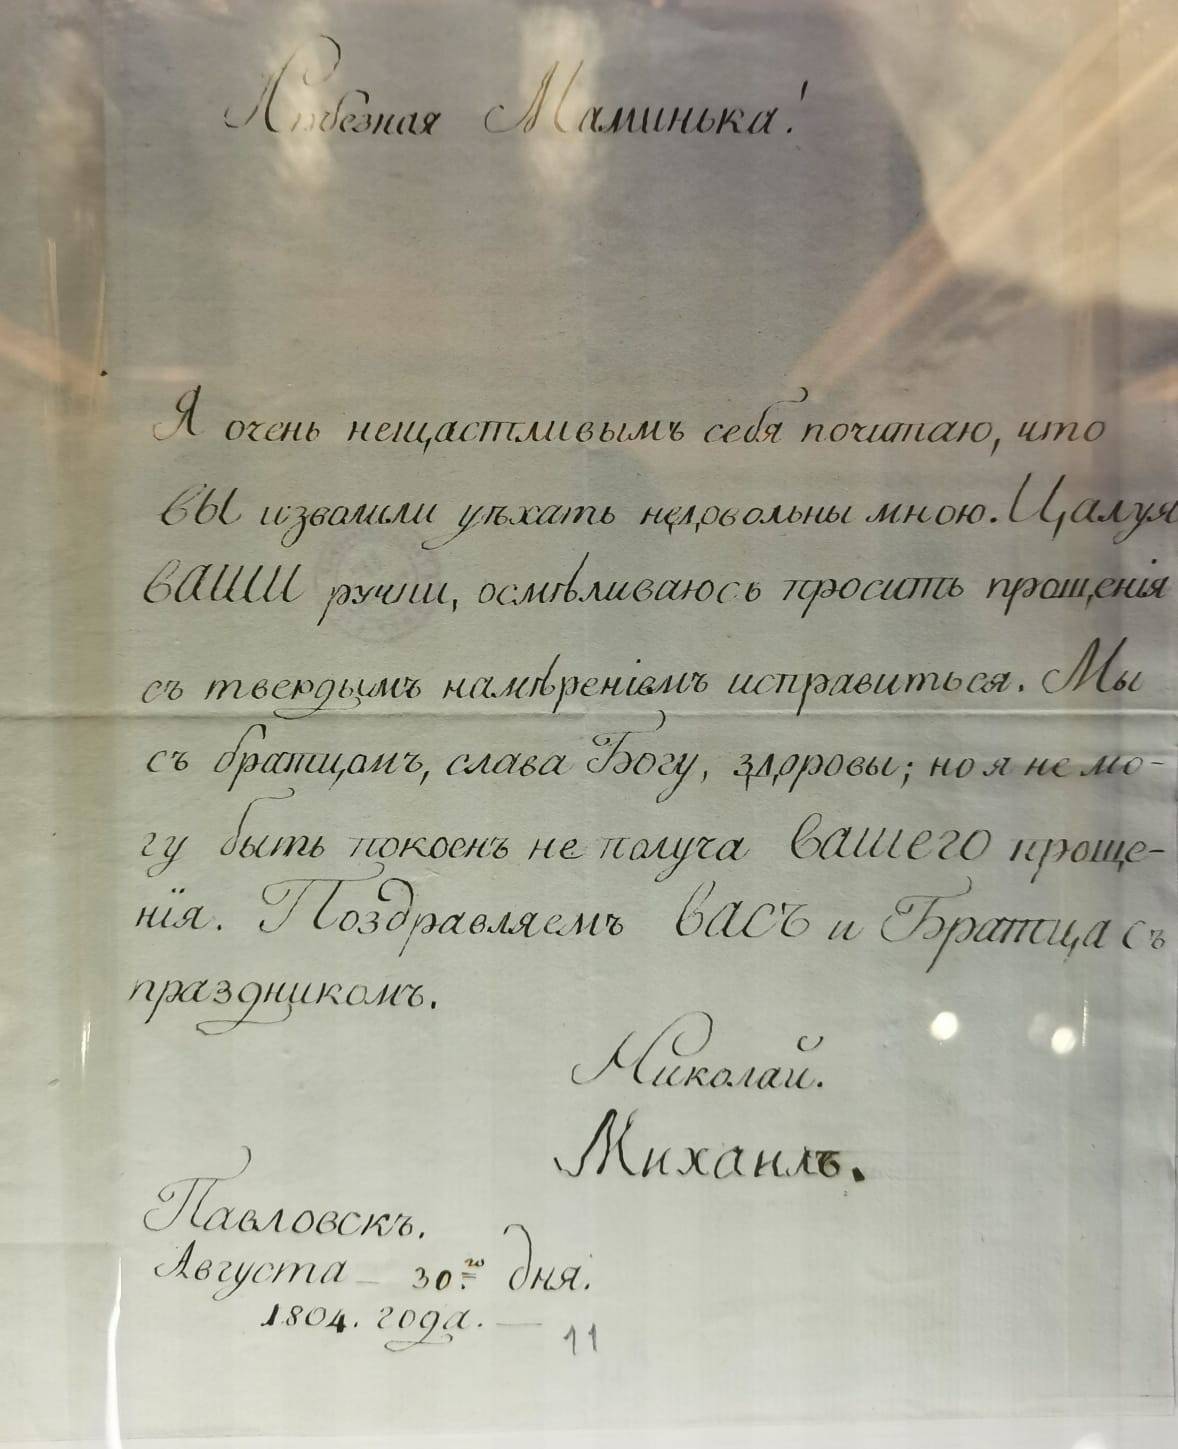 Любезная Маминька!
Я очень нещастливымъ себя почитаю, что
вы изволили уѣхать недовольны мною. Цалуя
ваши ручки, осмѣливаюсь просить прощенія
съ твердымъ намѣреніемъ исправиться. Мы
съ братцомъ, слава Богу, здоровы; но я не мо-
гу быть покоенъ не получа вашего проще-
нїя. Поздравляемъ васъ и Братца съ
праздникомъ.
Николай.
Михаилъ.
Павловскъ.
Августа — 30.го дня.
1804. года. —
11